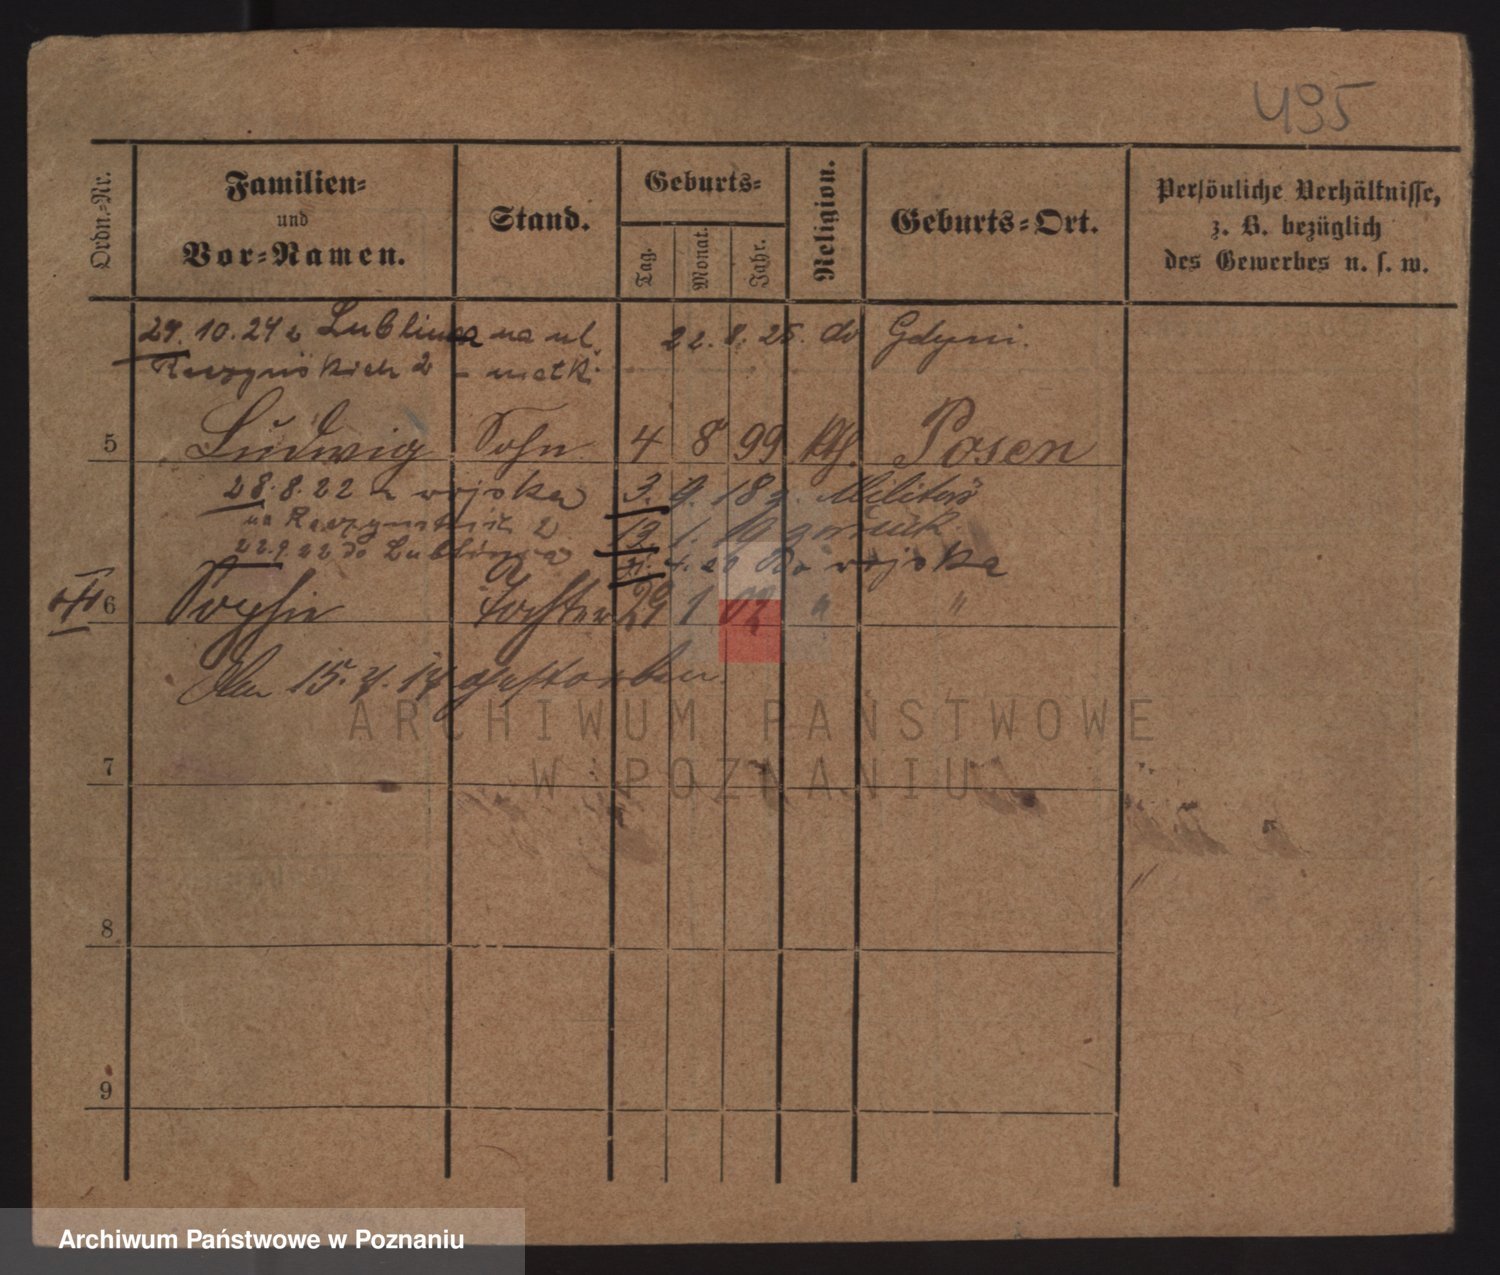 495
Ordn.-Nr.
Familien-
und
Vor-Namen.
Stand.
Geburts-
Tag.
Monat.
Jahr.
Religion.
Geburts-Ort.
Persönliche Verhältnisse,
z. B. bezüglich
des Gewerbes u. s. w.
29.10.24 z Lublinca na ul. 22.8.25. do Gdyni.
2 - matki
5 Ludwig Sohn 4 8 99 kth. Posen
28.8.22 z wojska 3. 9. 18 z. Militär
na 2 13. 1. 19 zurück
22.9.22 do Lublinca do wojska
6 Sophie Tochter 29 1 02 " "
Am 15. 4. 14 gestorben
7
8
9
ARCHIWUM PAŃSTWOWE
W POZNANIU
Archiwum Państwowe w Poznaniu